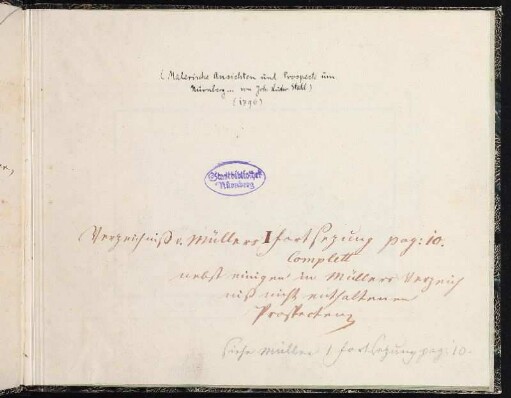 (Malerische Ansichten und Prospecte um
Nürnberg... von Joh. Stahl)
(1796)
Stadtbibliothek
Nürnberg
Verzeichniß v. Müllers I fortsezung pag: 10.
Complett
nebst einigen in Müllers Verzeich
niß nicht enthaltenen
Prospecten
siehe Müller I fortsezung pag: 10.